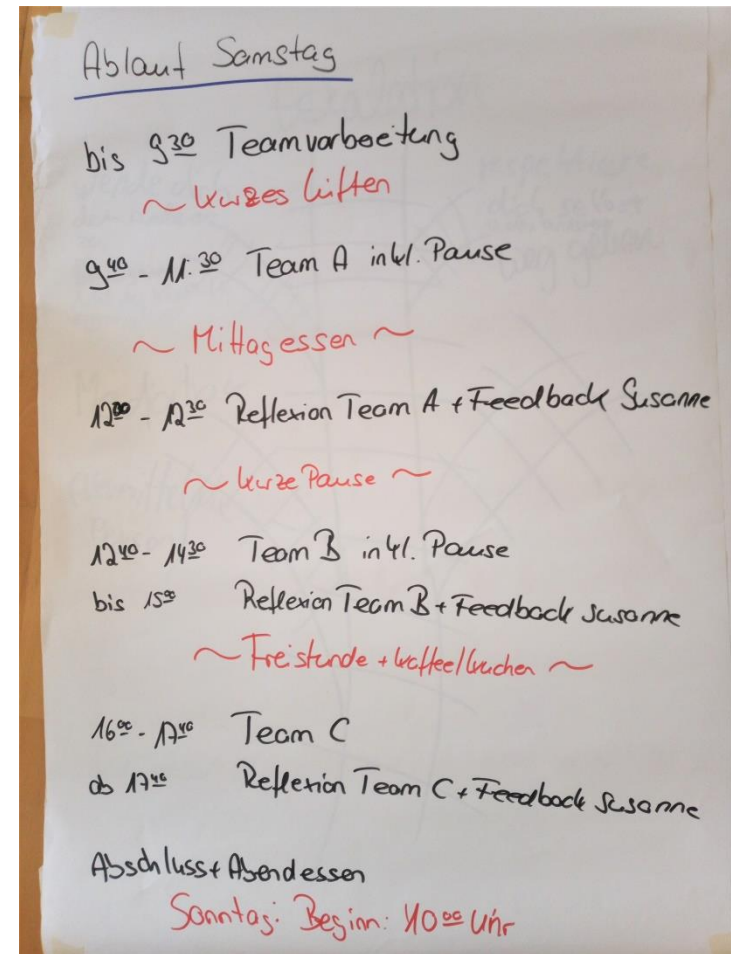 Ablauf Samstag
bis 9 30 Teamvorbereitung
~ kurzes lüften
9 40 - 11. 30 Team A inkl. Pause
~ Mittagessen ~
12 00 - 12 30 Reflexion Team A + Feedback Susanne
~ kurze Pause ~
12 40 - 14 30 Team B inkl. Pause
bis 15 00 Reflexion Team B + Feedback Susanne
~ Freistunde + kaffee/kuchen ~
16 00 - 17 40 Team C
ab 17 40 Reflexion Team C + Feedback Susanne
Abschluss + Abendessen
Sonntag: Beginn: 10 00 Uhr